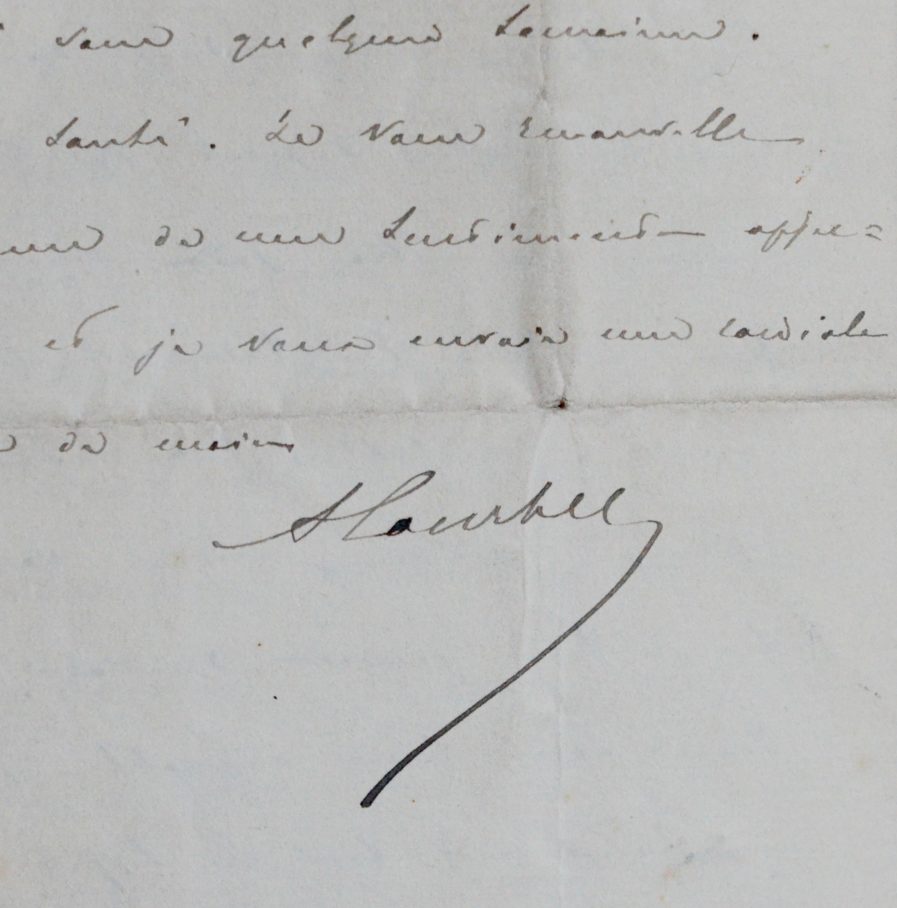 dans quelques semaines.
santé. Je vous renouvelle
de mes sentiments affec=
et je vous envoie une cordiale
de main
ACourbet